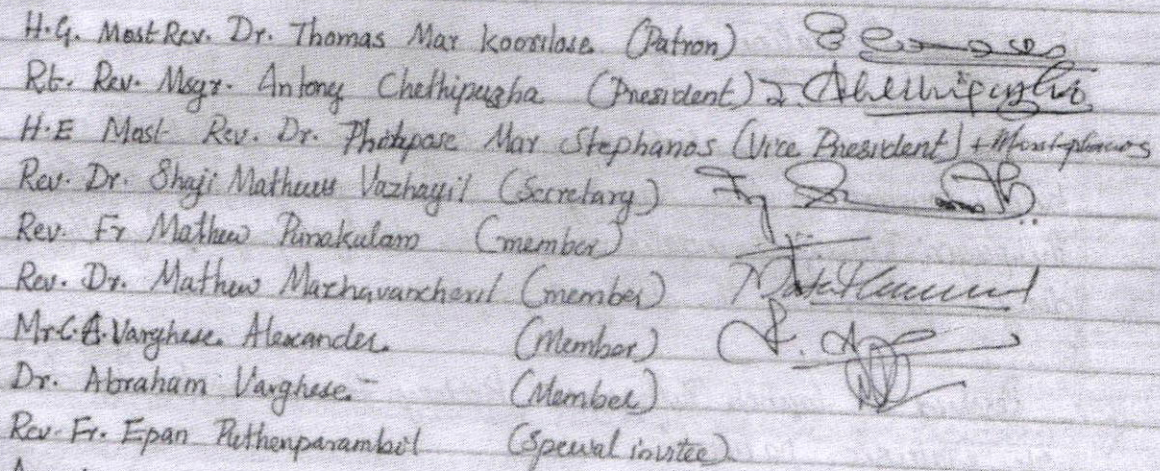 H.G. Most Rev. Dr. Thomas Mar Koorilose (Patron)
Rt. Rev. Msgr. Antony Chethipuzha (President) Chethipuzha
H.E Most Rev. Dr. Philipose Mar Stephanos (Vice President)
Rev. Dr. Shaji Mathews Vazhayil (Secretary)
Rev. Fr Mathew Punakulam (member)
Rev. Dr. Mathew Mazhavancheril (member)
Mr. C.A. Varghese Alexander. (Member)
Dr. Abraham Varghese (Member)
Rev. Fr. Epan Puthenparambil (Special invitee)